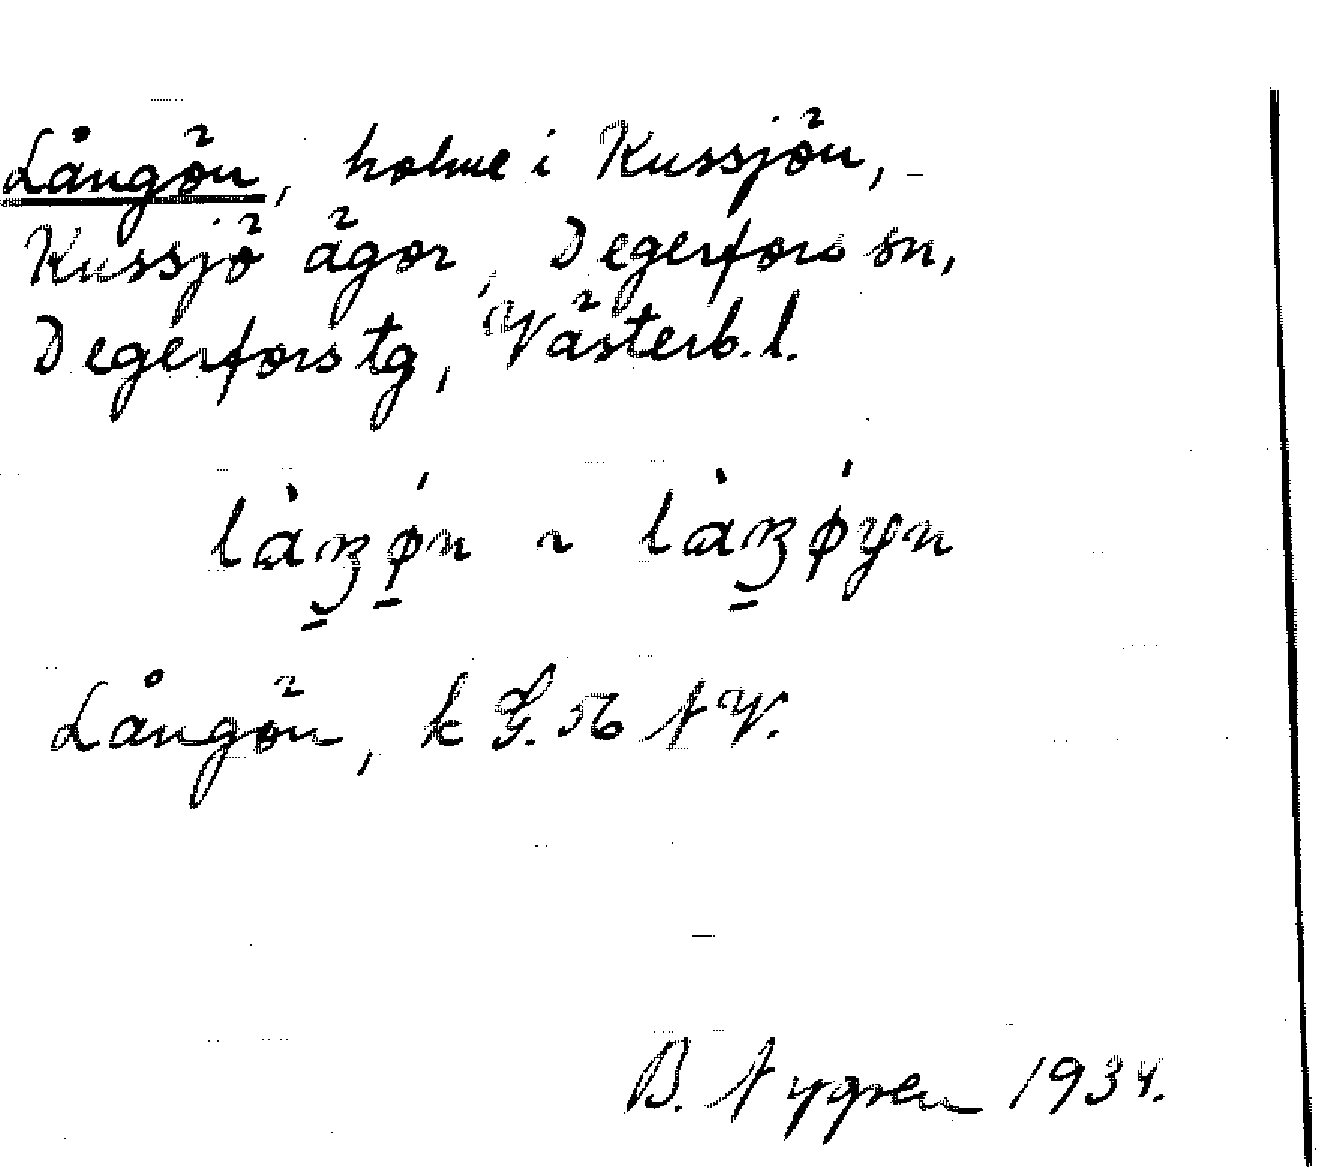 Långön, holme i Kussjön,
Kussjö ägor, Degerfors sn,
Degerfors tg, Västerb. l.
Långön, k G. 56 NV.
B. Nygren 1934.